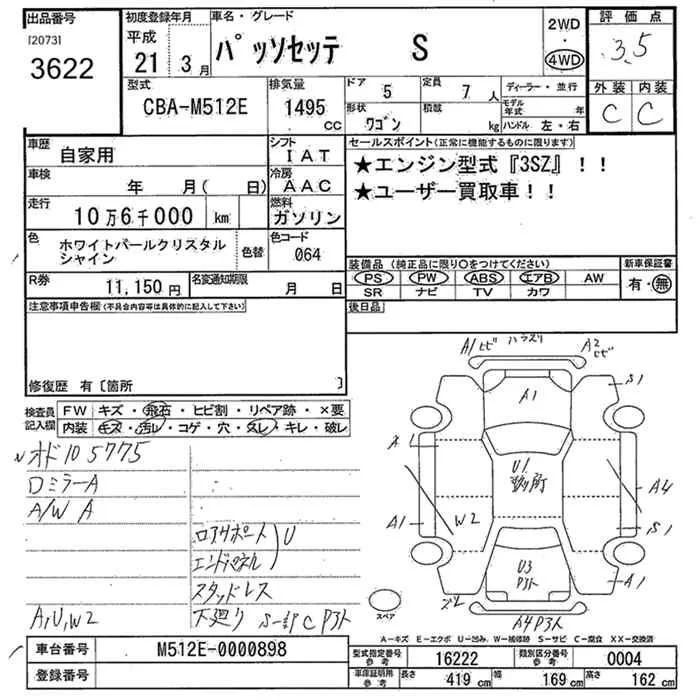 出品番号
[2073]
3622
初度登録年月
平成
21 3月
車名・グレード
パッソセッテ S
2WD
・
4WD
評価点
3.5
外装 内装
C C
型式
CBA-M512E
排気量
1495
CC
ドア
5
定員
7人
形状
ワゴン
積載
kg
ディーラー・並行
モデル年式 年
ハンドル 左・右
車歴
自家用
シフト
IAT
車検
年 月( 日)
冷房
AAC
走行
10万6千000 km
燃料
ガソリン
色
ホワイトパールクリスタル
シャイン
色替
色コード
064
R券
11,150円
名変通知期限
月 日
セールスポイント(正常に機能するものに限ります)
★エンジン型式『3SZ』!!
★ユーザー買取車!!
装備品(純正品に限り○をつけてください)
PS PW ABS エアB AW
SR ナビ TV カワ
新車保証書
有・無
後日品
注意事項申告欄(不具合内容等は具体的に記入して下さい)
修復歴 有[箇所 ]
検査員
記入欄
FW キズ・飛石・ヒビ割・リペア跡・×要
内装 キズ・汚レ・コゲ・穴・スレ・キレ・破レ
オド105775
ロミラーA
A/W A
ロアサポート
エンドパネル
U
スタッドレス
A,U,W2
下廻り S一部C Pアト
A1ヒビ
ハラスリ
A2ヒビ
A1
S1
A1
A1
U1
W2
A4
S1
U3
Pアト
A1
A4Pアト
スペア
A-キズ E-エクボ U-凹み W-補修跡 S-サビ C-腐食 XX-交換済
車台番号
M512E-0000898
登録番号
型式指定番号
参考
16222
類別区分番号
参考
0004
車庫証明用
参考
長さ 419 cm 幅 169 cm 高さ 162 cm